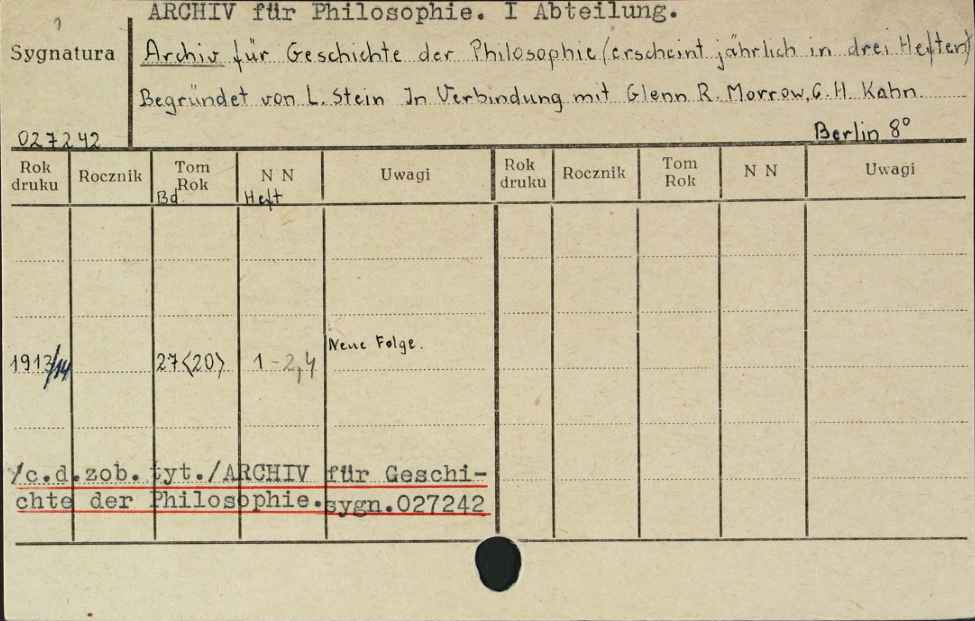 ARCHIV für Philosophie. I Abteilung.
Sygnatura
Archiv für Geschichte der Philosophie (erscheint jährlich in drei Heften)
Begründet von L. Stein In Verbindung mit Glenn R. Morrow, C. H. Kahn.
027242
Berlin 8°
Rok druku Rocznik Tom Rok N N Uwagi Rok druku Rocznik Tom Rok N N Uwagi
Bd. Heft
Neue Folge.
1913/14 27<20> 1-2,4
/c.d.zob. tyt./ARCHIV für Geschi-
chte der Philosophie.sygn.027242